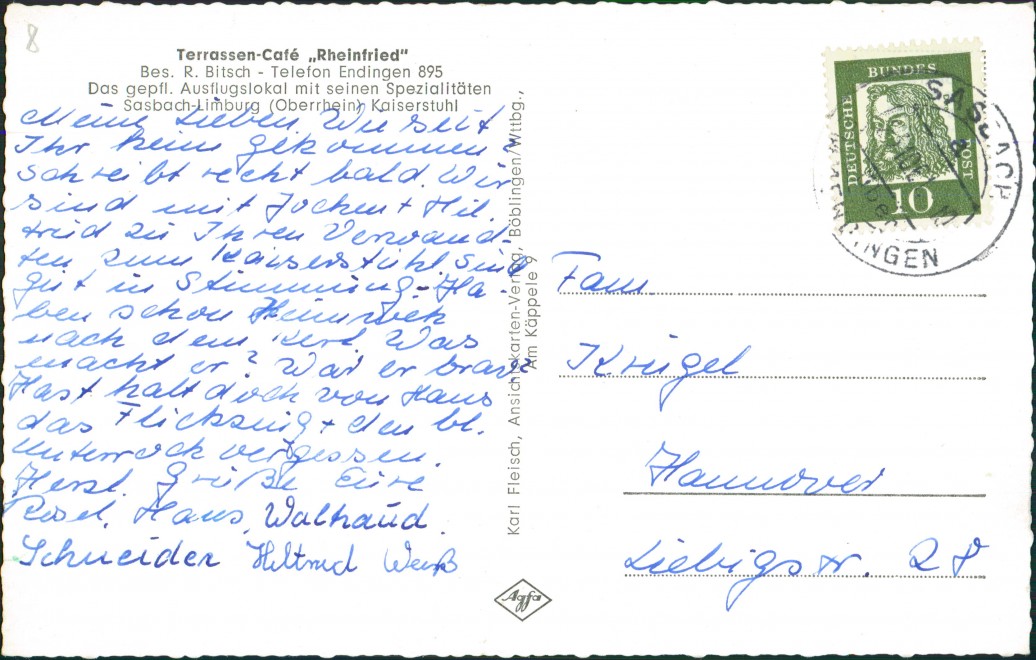 8
Terrassen-Café „Rheinfried"
Bes. R. Bitsch - Telefon Endingen 895
Das gepfl. Ausflugslokal mit seinen Spezialitäten
Sasbach-Limburg (Oberrhein) Kaiserstuhl
Meine Lieben. Wie seit
Ihr heim gekommen?
Schreibt recht bald. Wir
sind mit Jochen + Hil.
trud zu Ihren Verwand-
ten zum Kaiserstuhl. Sind
gut in Stimmung. Ha-
ben schon Heimweh
nach dem Kerl. Was
macht er? War er brav?
Hast halt doch von Hans
das Flickzeug + den bl.
Unterrock vergessen.
Herzl. Grüße Eure
Rosel, Hans, Waltraud.
Schneider Hiltrud Weiß
Karl Fleisch, Ansichtskarten-Verlag, Böblingen/Wttbg.,
Am Käppele 9
Agfa
DEUTSCHE
BUNDES
POST
10
SASBACH
Fam.
Krügel
Hannover
Liebigstr. 28